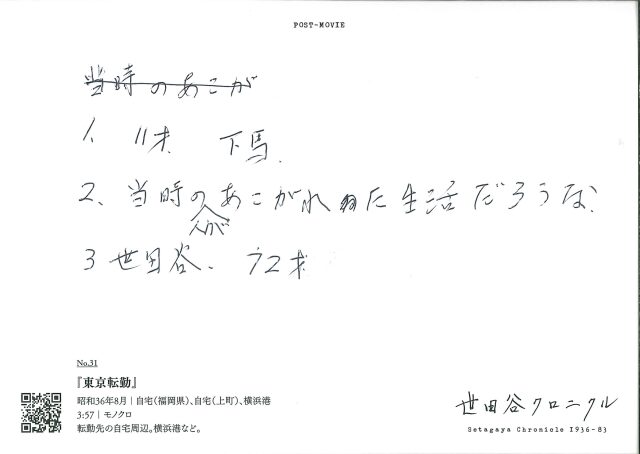 POST-MOVIE
当時のあこが
1、 11才 下馬.
2、当時の人があこがれた生活だろうな.
3 世田谷. 72才
No.31
『東京転勤』
昭和36年8月｜自宅(福岡県)、自宅(上町)、横浜港
3:57｜モノクロ
転勤先の自宅周辺。横浜港など。
世田谷クロニクル
Setagaya Chronicle 1936-83